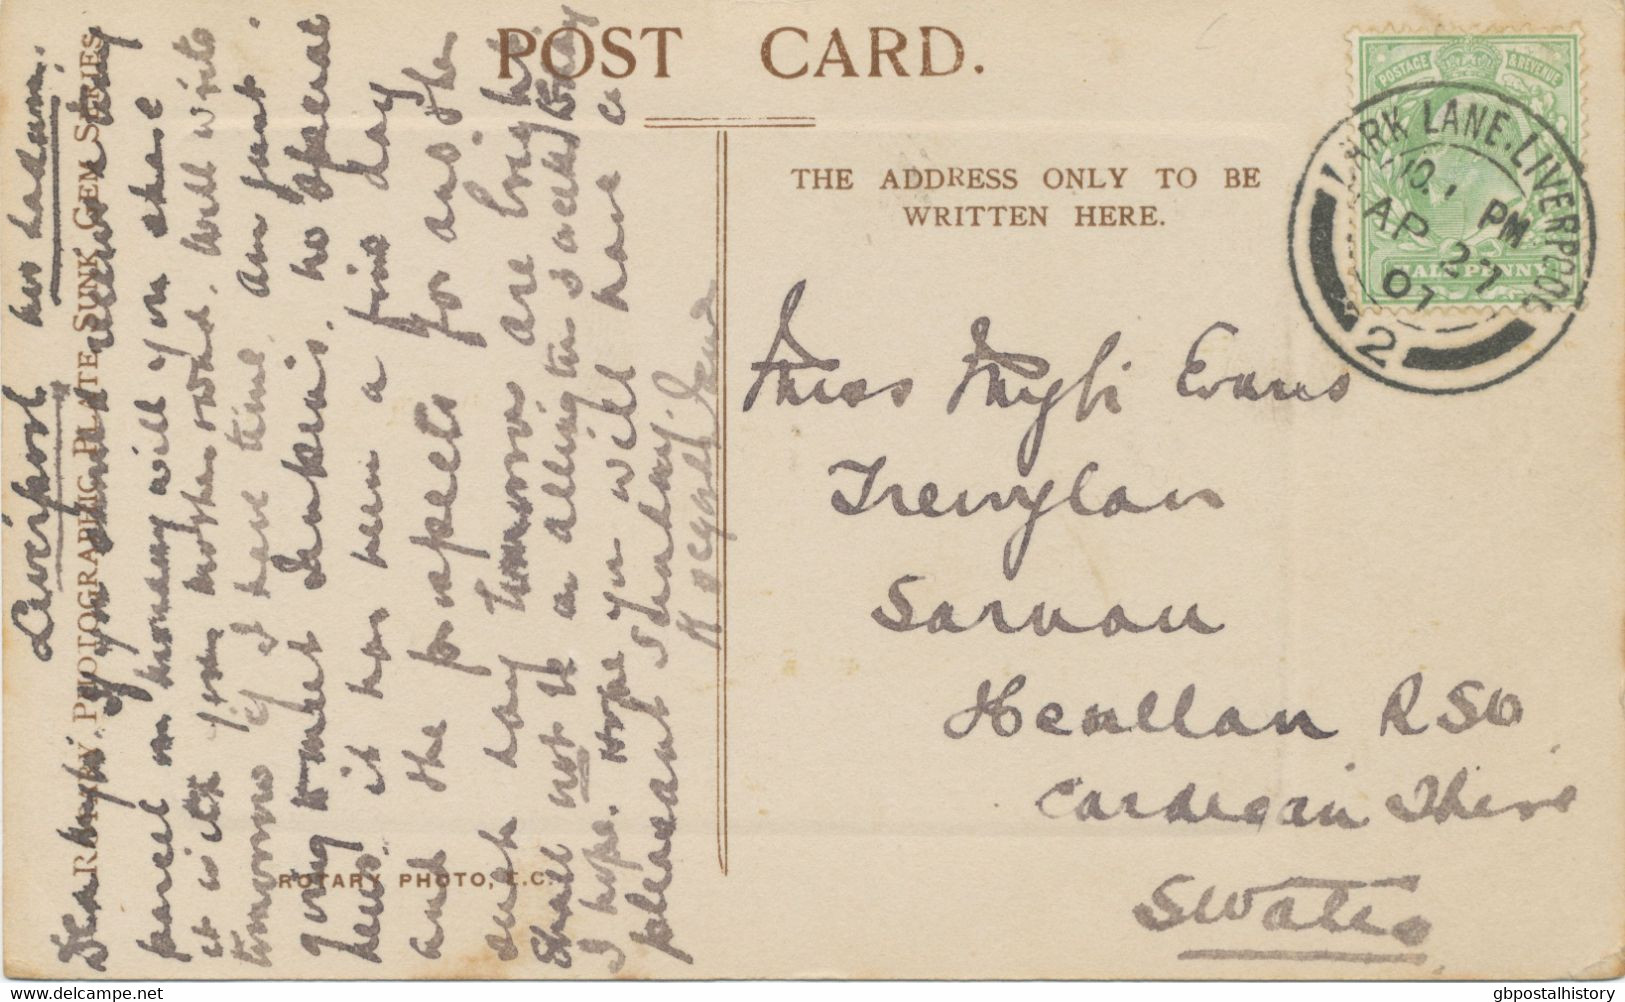 POST CARD.
THE ADDRESS ONLY TO BE
WRITTEN HERE.
POSTAGE & REVENUE
HALFPENNY
LARK LANE. LIVERPOOL
10. PM
AP 27
07
2
Miss Myfi Evans
Trewylan
Sarnau
Henllan RSO
Cardigan Shire
S Wales
ROTARY PHOTOGRAPHIC PLATE SUNK GEM SERIES
ROTARY PHOTO, E.C.
Liverpool
Dear Myfi. If you send
parcel on Monday will you share
it with your. Will write
tomorrow if I have time. Am just
going to meet Jenkins. no special
news. it has been a fine day
and the prospects for another
such day tomorrow are bright
Shall not be a
I hope. Hope you will have a
pleasant Sunday.
delcampe.net
gbpostalhistory